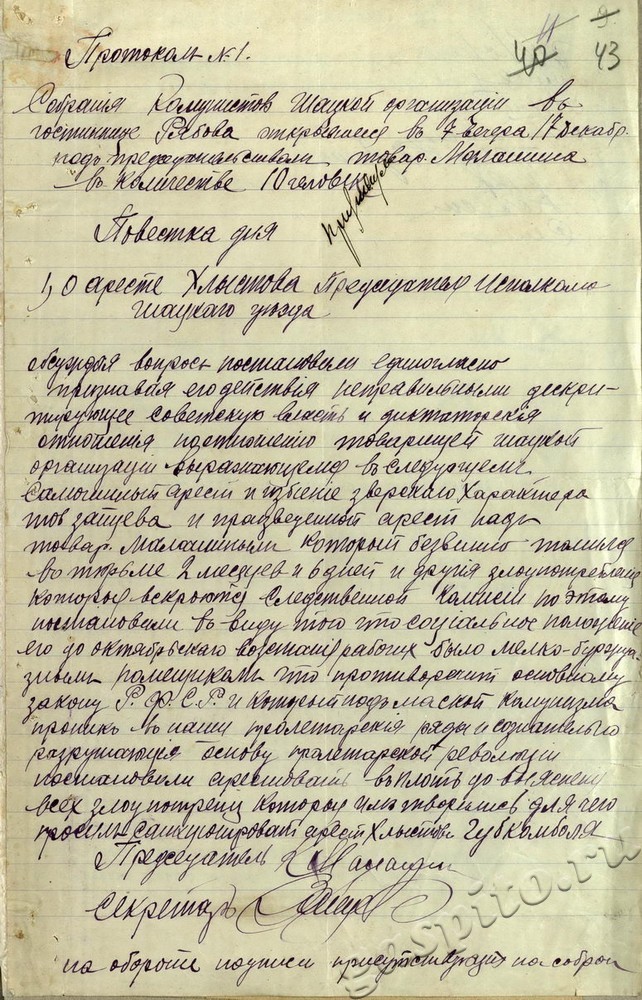 11 9
40 43
Протоколъ №1.
Собранія Комунистов Шацкой организаціи въ
гостиннице Рябова открывшееся въ 7 вечера 17 декабр.
подъ председательствомъ товар. Малашина
въ количестве 10 человекъ
Повестка дня
1, О аресте Хлыстова Председателя Исполкома
Шацкаго уезда
обсуждая вопросъ постановили единогласно
признавая его действія неправильными дескри-
тирующее советскую власть и диктаторскія
отношенія по отношенію товарищей шацкой
организаціи выражающемся въ следующемъ
Самочинный арест и избіеніе зверскаго характера
тов Зайцева и празведенной арест надъ
товар. Малашиным который безвинно томился
въ тюрьме 2 месяцев и 6 дней и другія злоупотребленія
которые вскроются следственной комисіи по этому
постановили въ виду того что социальное положение
его до октябрьскаго востанія рабочих было мелко-буржуа
зным помещиком что противоречит основному
закону Р.Ф.С.Р. и который под маской комунизма
проник въ наши пролетарскія ряды и сознательно
разрушающія основу пролетарской революціи
постановили арестовать въ плоть до выяснени
всех злоупотреб. которые им творились для чего
просить санкционироват арест Хлыстова Губкомболя
Председатель Малашин
секретарь
на обороте подписи присутствующих на собран
gaspito.ru